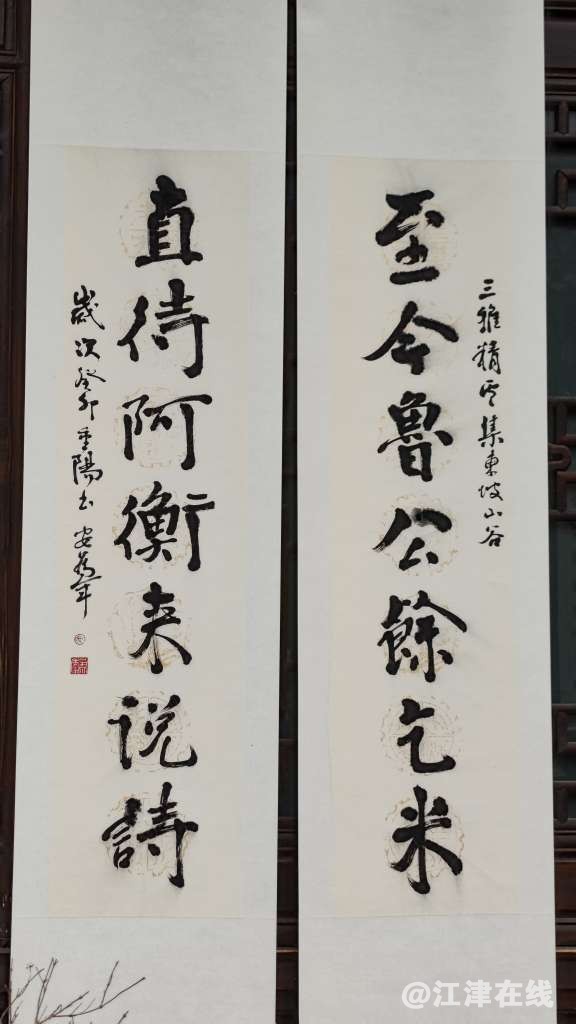 三雅精舍集東坡山谷
至今魯公餘乞米
直待阿衡来说詩
歲次癸卯重陽書
@江津在线